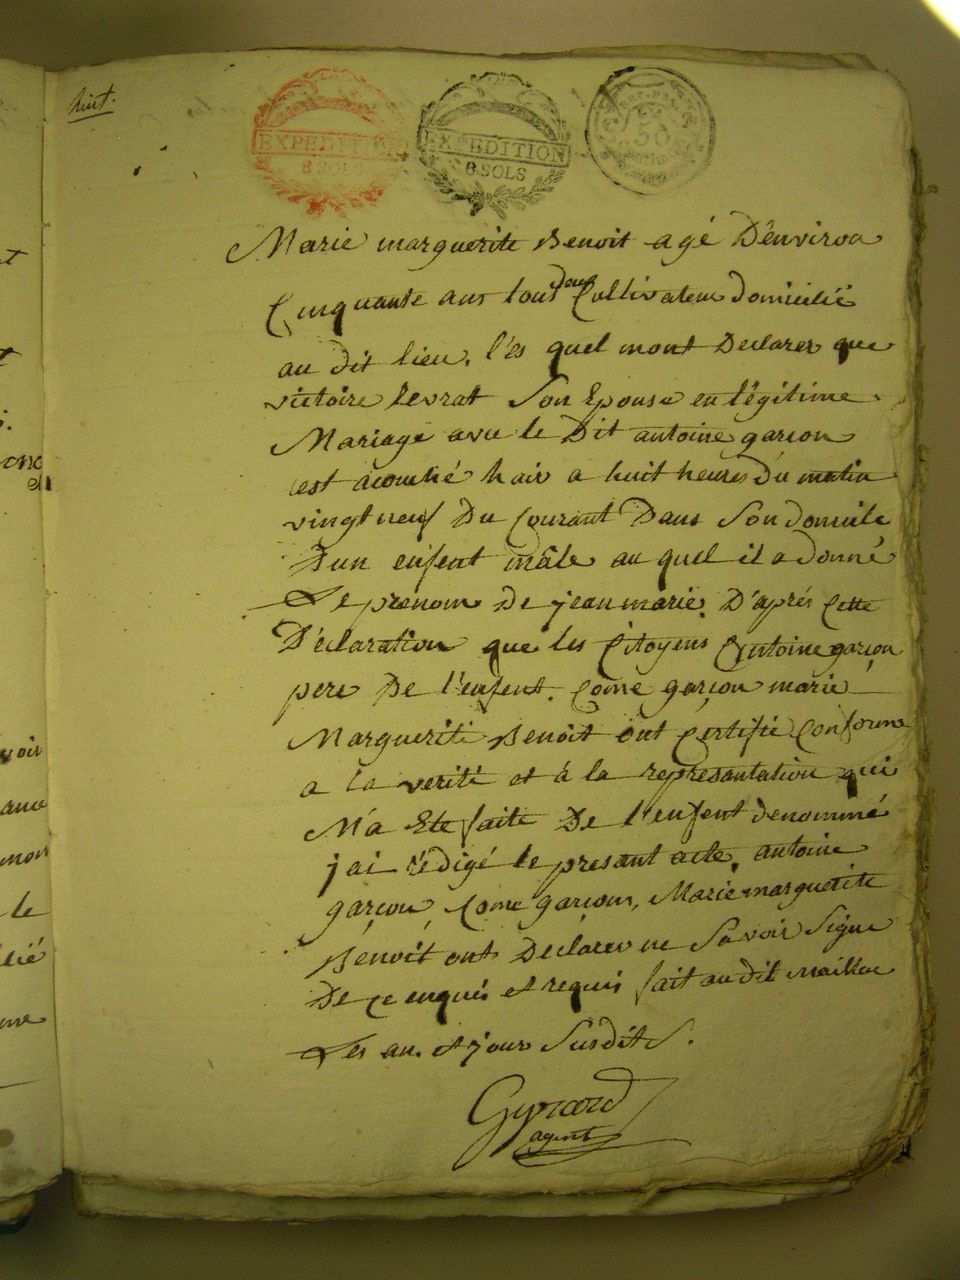 huit.
EXPEDITION
8 SOLS
EXPEDITION
8 SOLS
50
Marie marguerite Benoit agé D'environ
Cinquante ans tous deux Cultivateur domicilié
au dit lieu. lés quel mont Declarer que
victoire levrat Son Epouse en légitime
Mariage avec le Dit antoine garçon
est acouché hair a huit heures du matin
vingt neuf Du Courant Dans Son domicile
D'un enfent mâle au quel il a donné
Le prénom De jean marie. D'aprés Cette
Déclaration que les Citoyens Antoine garçon
pere De l'enfent. Come garçon marie
Marguerite Benoit ont Certifié Conforme
a la verité et à la represantation qui
M'a Eté faite De l'enfent denommé
j'ai rédigé le presant acte. antoine
garçon, Come garçon, Marie marguerite
Benoit ont Declarer ne Savoir Signe
De ce enquis et requis fait au dit
Les an. et jour Susdit S.
agent
voir
ance
mon
le
lié
me